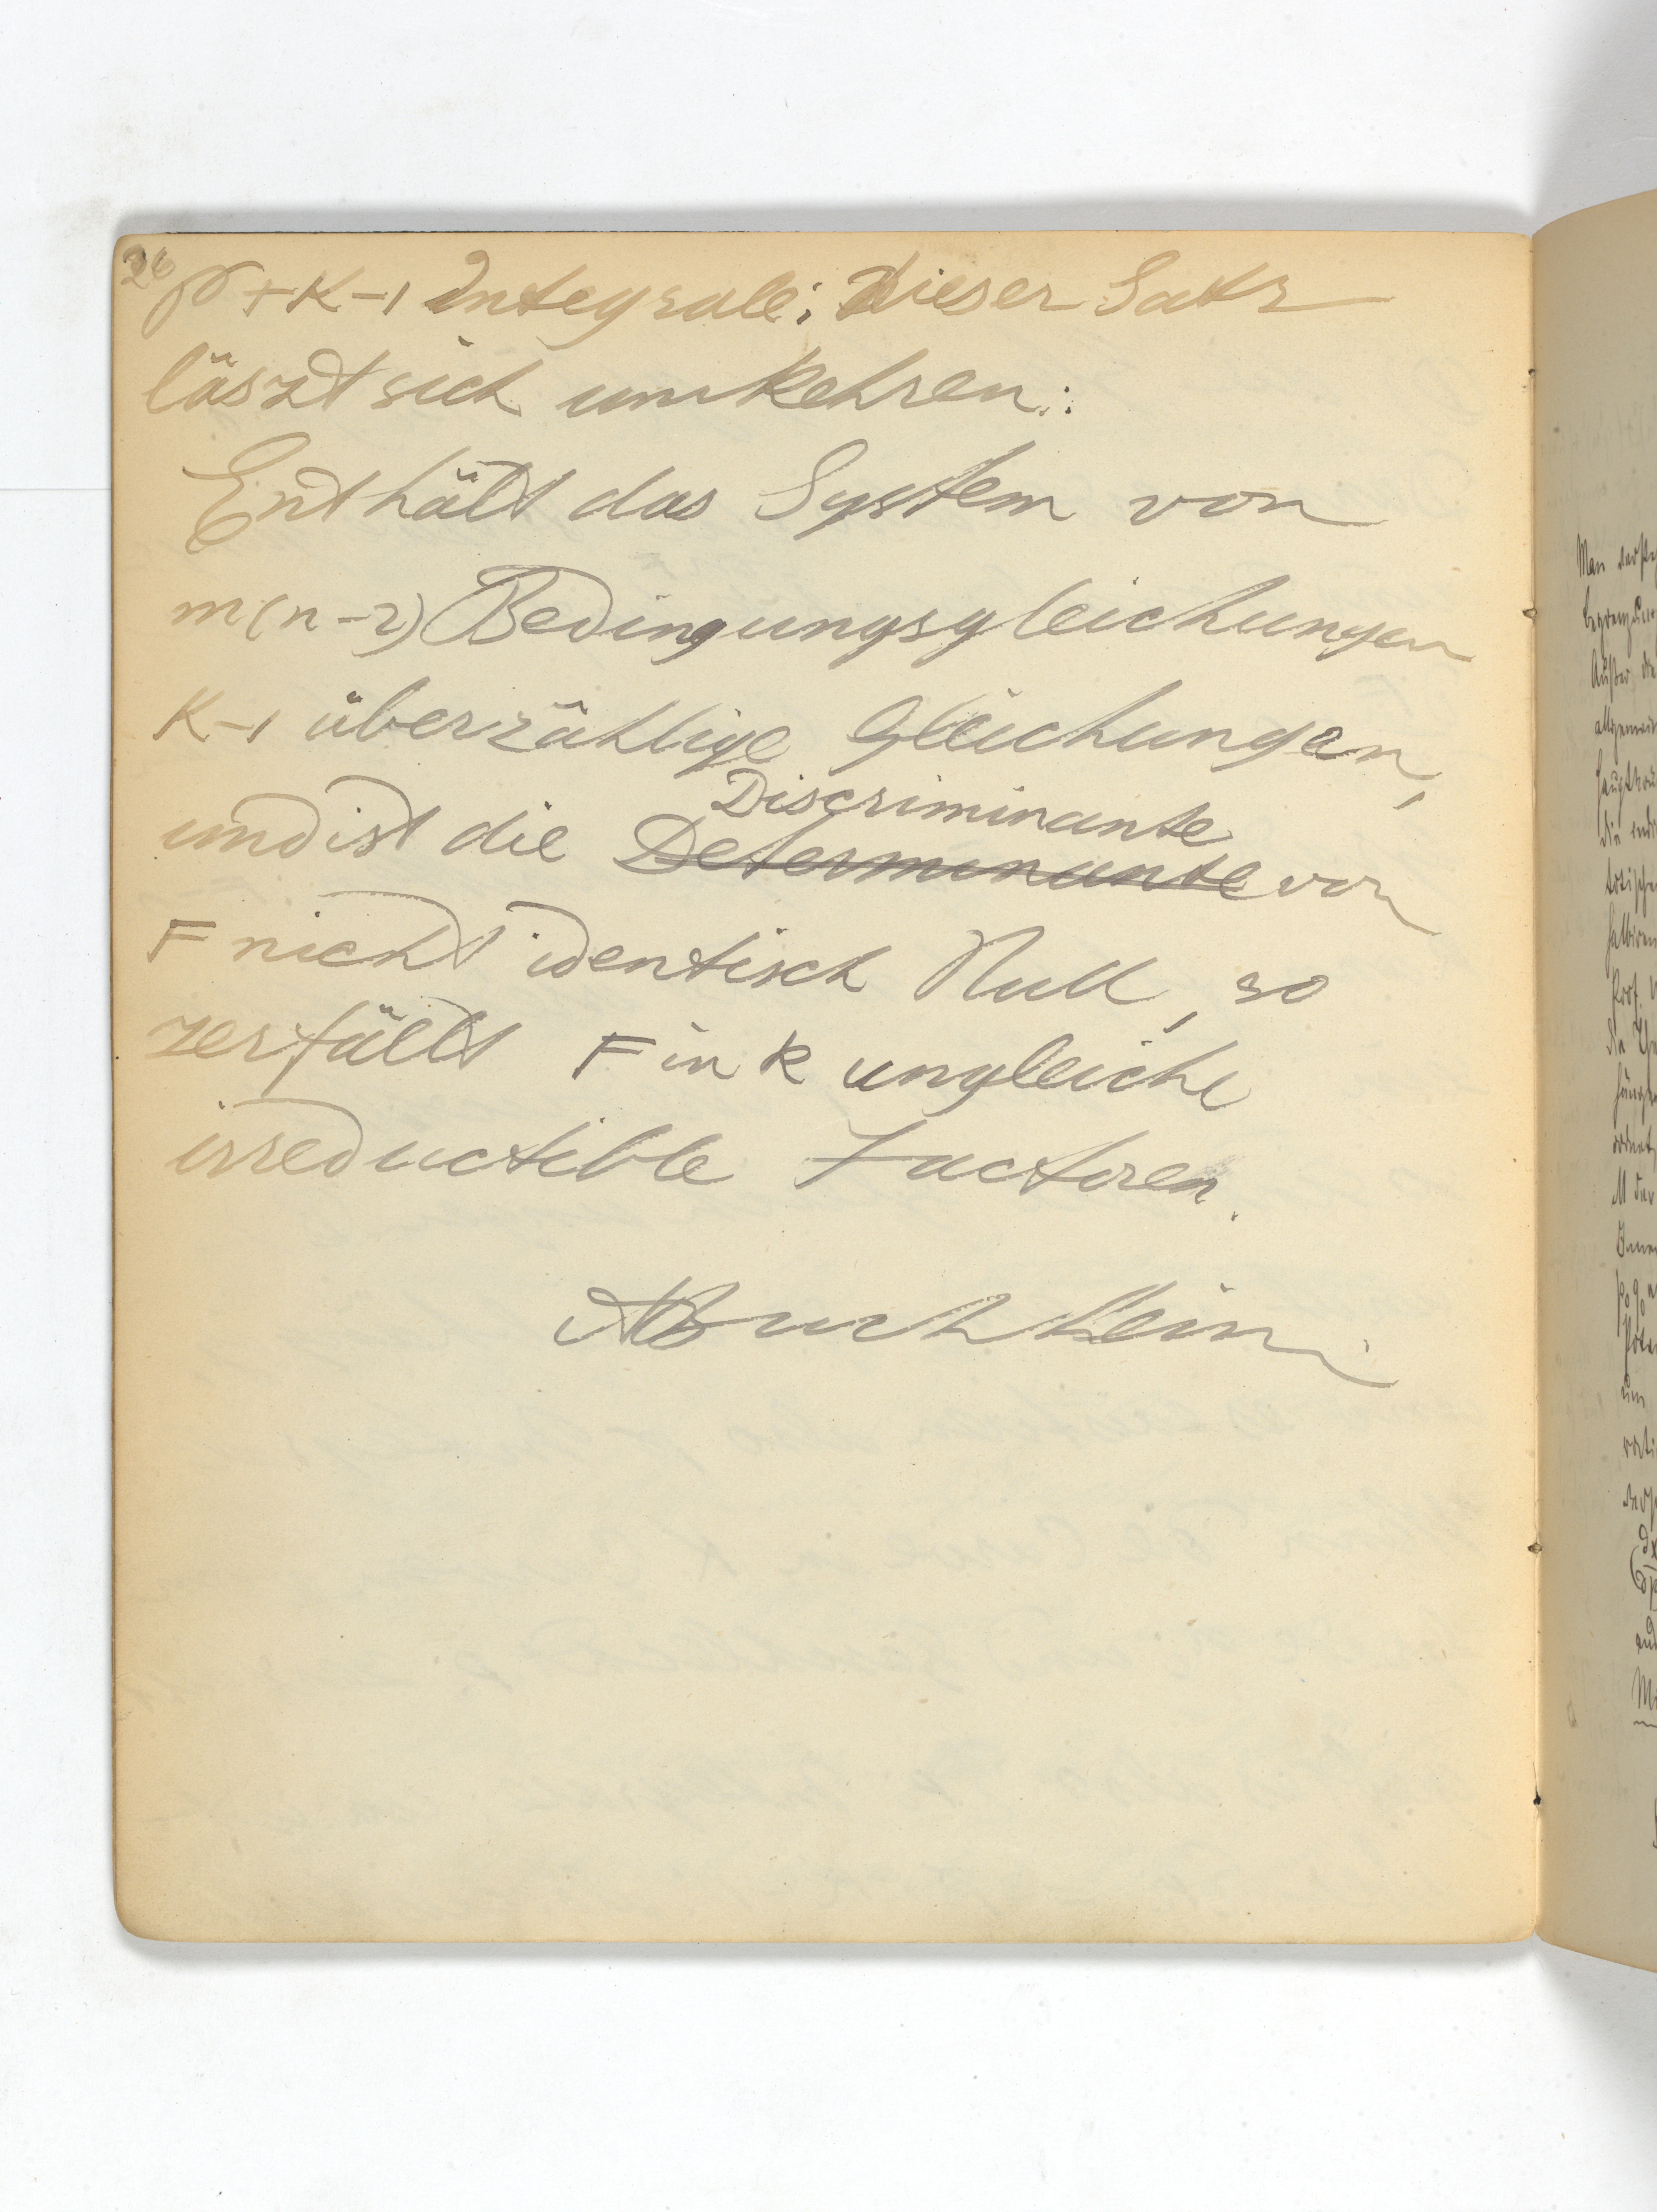 26
p+K-1 Integrale; Dieser Satz
läszt sich umkehren:
Enthält das System von
m(n-2) Bedingungsgleichungen
K-1 überzählige Gleichungen,
Discriminante
und ist die Determinante von
F nicht identisch Null, so
zerfällt F in k ungleiche
irreductible Factoren.